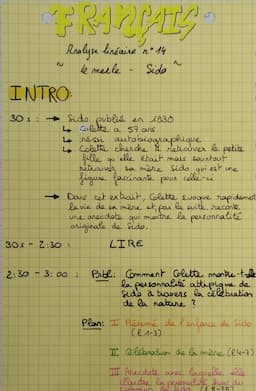 FRANÇAIS
Analyse linéaire n°14
le merle - Sido
INTRO:
30 s : → Sido publié en 1930
↳ Colette a 57 ans
↳ récit autobiographique
↳ Colette cherche à retrouver la petite
fille qu'elle était mais surtout
retrouver sa mère Sido qui est une
figure fascinante pour celle-ci
→ Dans cet extrait, Colette évoque rapidement
la vie de sa mère et par la suite raconte
une anecdote qui montre la personnalité
originale de Sido.
30s - 2:30 : LIRE
2:30 - 3:00 : Pbtl: Comment Colette montre-t-elle
la personnalité atypique de
Sido à travers la célébration
de la nature ?
Plan: I Résumé de l'enfance de Sido
(l 1-3)
II Célébration de la mère (l 4-7)
III Anecdote avec laquelle elle
illustre la personnalité hors du
commun de Sido